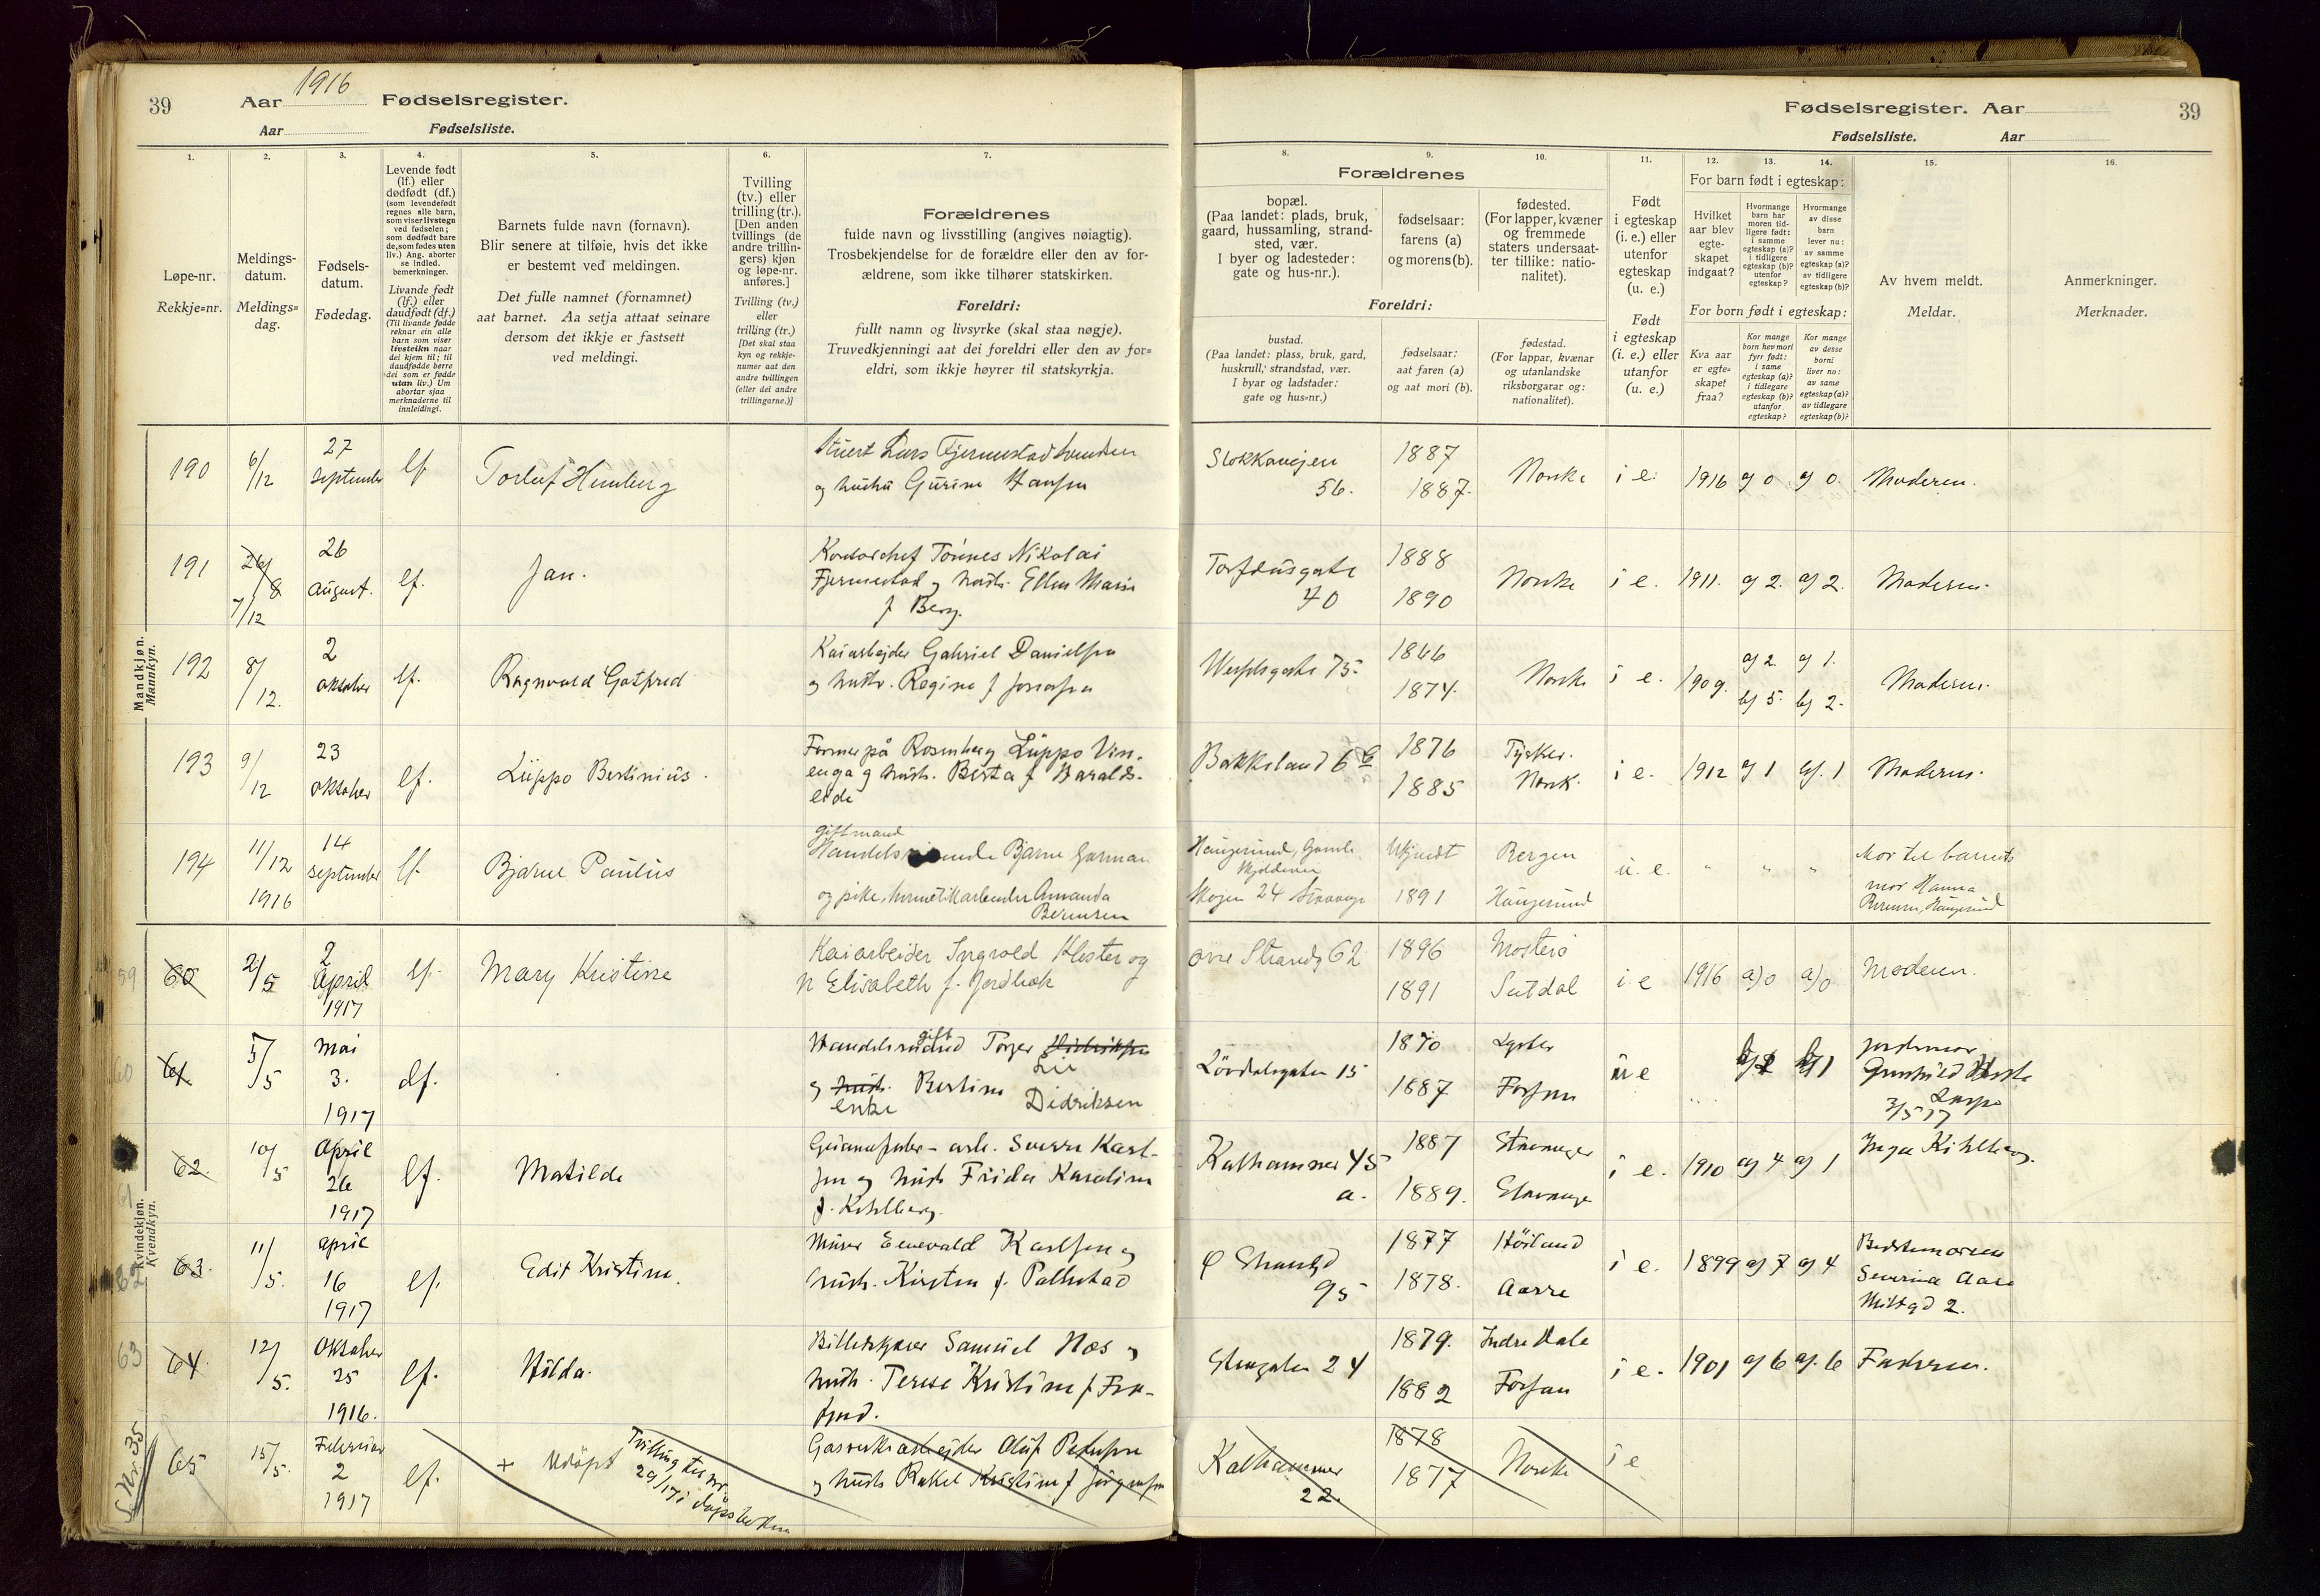 39
Aar 1916 Fødselsregister.
Aar Fødselsliste.
1. 2. 3. 4. 5. 6. 7.
Løpe-nr.
Rekkje=nr.
Meldings-
datum.
Meldings=
dag.
Fødsels-
datum.
Fødedag.
Levende født
(lf.) eller
dødfødt (df.)
(som levendefødt
regnes alle barn,
som viser livstegn
ved fødselen;
som dødfødt bare
de, som fødes uten
liv.) Ang. aborter
se indled.
bemerkninger.
Livande født
(lf.) eller
daudfødt (df.)
(Til livande fødde
reknar ein alle
barn som viser
livsteikn naar
dei kjem til; til
daudfødde berre
dei som er fødde
utan liv.) Um
abortar sjaa
merknaderne til
innleidingi.
Barnets fulde navn (fornavn).
Blir senere at tilføie, hvis det ikke
er bestemt ved meldingen.
Det fulle namnet (fornamnet)
aat barnet. Aa setja attaat seinare
dersom det ikkje er fastsett
ved meldingi.
Tvilling
(tv.) eller
trilling (tr.).
[Den anden
tvillings (de
andre trillin-
gers) kjøn
og løpe-nr.
anføres.]
Tvilling (tv.)
eller
trilling (tr.)
[Det skal staa
kyn og rekkje-
numer aat den
andre tvillingen
(eller dei andre
trillingarne.)]
Forældrenes
fulde navn og livsstilling (angives nøiagtig).
Trosbekjendelse for de forældre eller den av for-
ældrene, som ikke tilhører statskirken.
Foreldri:
fullt namn og livsyrke (skal staa nøgje).
Truvedkjenningi aat dei foreldri eller den av for=
eldri, som ikkje høyrer til statskyrkja.
Mandkjøn.
Mannkyn.
190 6/12 27 September lf. Torluf Humberg
og hustru Gurine Hansen
191 26/8 7/12 26 August. lf. Jan.
Kontorchef Tönnes Nikolai
Fjermestad og hustr. Ellen Marie
f Berg.
192 8/12. 2 oktober lf. Ragnvald Gotfred
Kaiarbejder Gabriel Danielsen
og hustr. Regine f
193 9/12 23 oktober lf. Lüppo Bertinius.
Former på Rosenberg Lüppo Vin-
enga og hustr. Berta f Haralds-
eide
194 11/12 1916 14 September lf. Bjarne Paulus
gift mand
Bjarne Garman
og pike, hermetikarbeider Amanda
Berentsen
Kvindekjøn.
Kvendkyn.
59 60 2/5 2 April 1917 lf. Mary Kristine
Kaiarbeider Ingvald Klester og
h Elisabeth f.
60 61 5/5 Mai 3. 1917 df.
gift
Torger
Lie
og hustr. Bertine Didriksen
enke
61 62. 10/5 April 26 1917 lf. Matilde
Sverre Karl-
sen og hustr Frida Karoline
f. Kihlberg.
62 63. 11/5. April 16 1917 lf. Edit Kristine.
Murer Enevald Karlsen og
hustr. Kirsten f. Pallestad
63 64. 12/5. Oktober 25 1916. lf. Hilda.
Billetskjærer Samuel Næs og
hustr. Terese Kristine f Fra-
fjord.
S. Nr. 35
65 15/5. Februar 2 1917 lf. + Udöpt Tvilling til nr.
29/17 i dåpsboken
Gasverksarbejder Oluf Pedersen
og hustr Rakel Kristine f Jörgensen
Fødselsregister. Aar 39
Fødselsliste. Aar
8. 9. 10. 11. 12. 13. 14. 15. 16.
Forældrenes
bopæl.
(Paa landet: plads, bruk,
gaard, hussamling, strand-
sted, vær.
I byer og ladesteder:
gate og hus-nr.).
fødselsaar:
farens (a)
og morens (b).
fødested.
(For lapper, kvæner
og fremmede
staters undersaat-
ter tillike: natio-
nalitet).
Foreldri:
bustad.
(Paa landet: plass, bruk, gard,
huskrull, strandstad, vær.
I byar og ladstader:
gate og hus=nr.)
fødselsaar:
aat faren (a)
og aat mori (b).
fødestad.
(For lappar, kvænar
og utanlandske
riksborgarar og:
nationalitet).
Født
i egteskap
(i. e.) eller
utenfor
egteskap
(u. e.)
Født
i egteskap
(i. e.) eller
utanfor
(u. e.)
For barn født i egteskap:
Hvilket
aar blev
egte-
skapet
indgaat?
Hvormange
barn har
moren tid-
ligere født:
i samme
egteskap (a)?
i tidligere
egteskap (b)?
utenfor
egteskap?
Hvormange
av disse
barn
lever nu:
av samme
egteskap (a)?
av tidligere
egteskap (b)?
For born født i egteskap:
Kva aar
er egte-
skapet
fraa?
Kor mange
born hev mori
fyrr født:
i same
egteskap (a)?
i tidlegare
egteskap (b)?
utanfor
egteskap?
Kor mange
av desse
borni
liver no:
av same
egteskap (a)?
av tidlegare
egteskap (b)?
Av hvem meldt.
Meldar.
Anmerkninger.
Merknader.
Stokkaveien 56. 1887 1887. Norske i e. 1916 a) 0 a) 0 Moderen.
Torfæusgate 40 1888 1890 Norske i e. 1911. a) 2. a) 2. Moderen.
75. 1866 1874. Norske i e. 1909. a) 2. b) 5. a) 1. b) 2. Moderen.
Bakkeland 6 1876 1885 Tysker. Norsk. i e. 1912 a) 1 a). 1 Moderen.
Haugesund, Ukjendt Bergen
Skogen 24 Stavanger 1891 Haugesund u. e. " " "
Mor til barnets
mor Hanna
Berentsen, Haugesund
øvre Strandg 62 1896 1891 Mosterö i e 1916 a) 0 a) 0 Moderen.
Lövdalsgaten 15 1870 1887 Lyster u e b) 1
Jordmor
3/5 17
Kalhammer 45 a. 1887 1889. Stavanger Stavanger i e. 1910 a) 4 a) 1 Inga Kihlberg.
Ø Strandgd 95 1877 1878. Höiland Aarre i e. 1899 a) 7 a) 4
Bestemoren
Severine Aase
2.
Stengaten 24 1879. 1882 Indre Dale Forsan i e. 1901 a) 6 a). 6 Faderen.
Kalhammer 22. 1878 1877 Norske i e